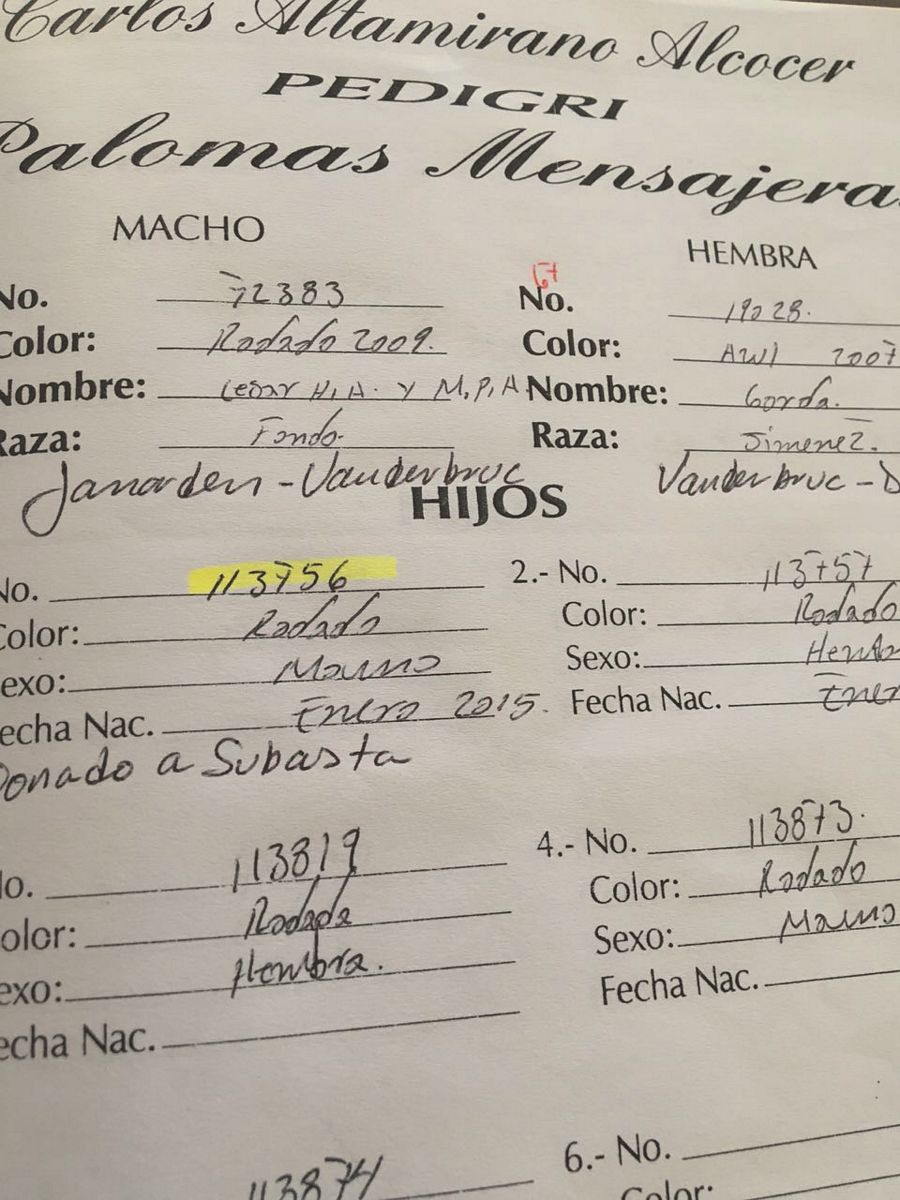 Carlos Altamirano Alcocer
PEDIGRI
Palomas Mensajera
MACHO HEMBRA
67
No. 72383 No. 19028.
Color: Rodado 2009. Color: 2007
Nombre: Cesar H, A. Y M, P, A Nombre: Gorda.
Raza: Fondo. Raza: Jimenez.
Janarden - Vanderbruc Vanderbruc - D
HIJOS
No. 113756 2.- No. 113757
Color: Rodado Color: Rodado
exo: Macho Sexo: Hemb
echa Nac. Enero 2015. Fecha Nac. Ener
Donado a Subasta
No. 113819 4.- No. 113873.
olor: Rodada Color: Rodado
exo: Hembra. Sexo: Macho
echa Nac. Fecha Nac.
113874 6.- No.
Color: